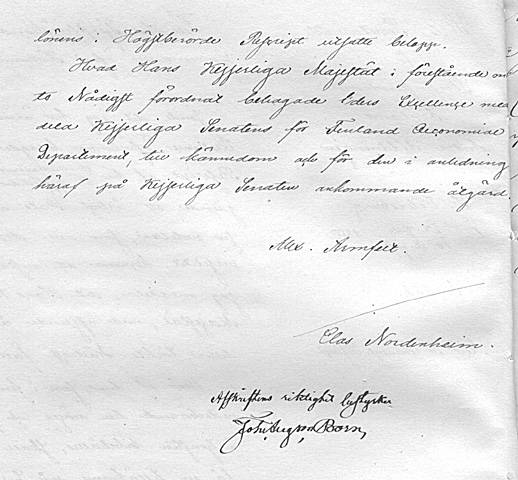 lönens i Högstberörde Reskript utsatte belopp.
Hvad Hans Kejserliga Majestät i förestående mått
to Nådigst förordnat behagade Eders Excellence med
dela Kejserliga Senatens för Finland Oeconomiae
Departement, till kännedom och för den i anledning
häraf på Kejserliga Senaten ankommande åtgärd.
Alex. Armfelt.
Clas Nordenheim.
Afskriftens riktighet bestyrker
Joh: Aug: von Born,